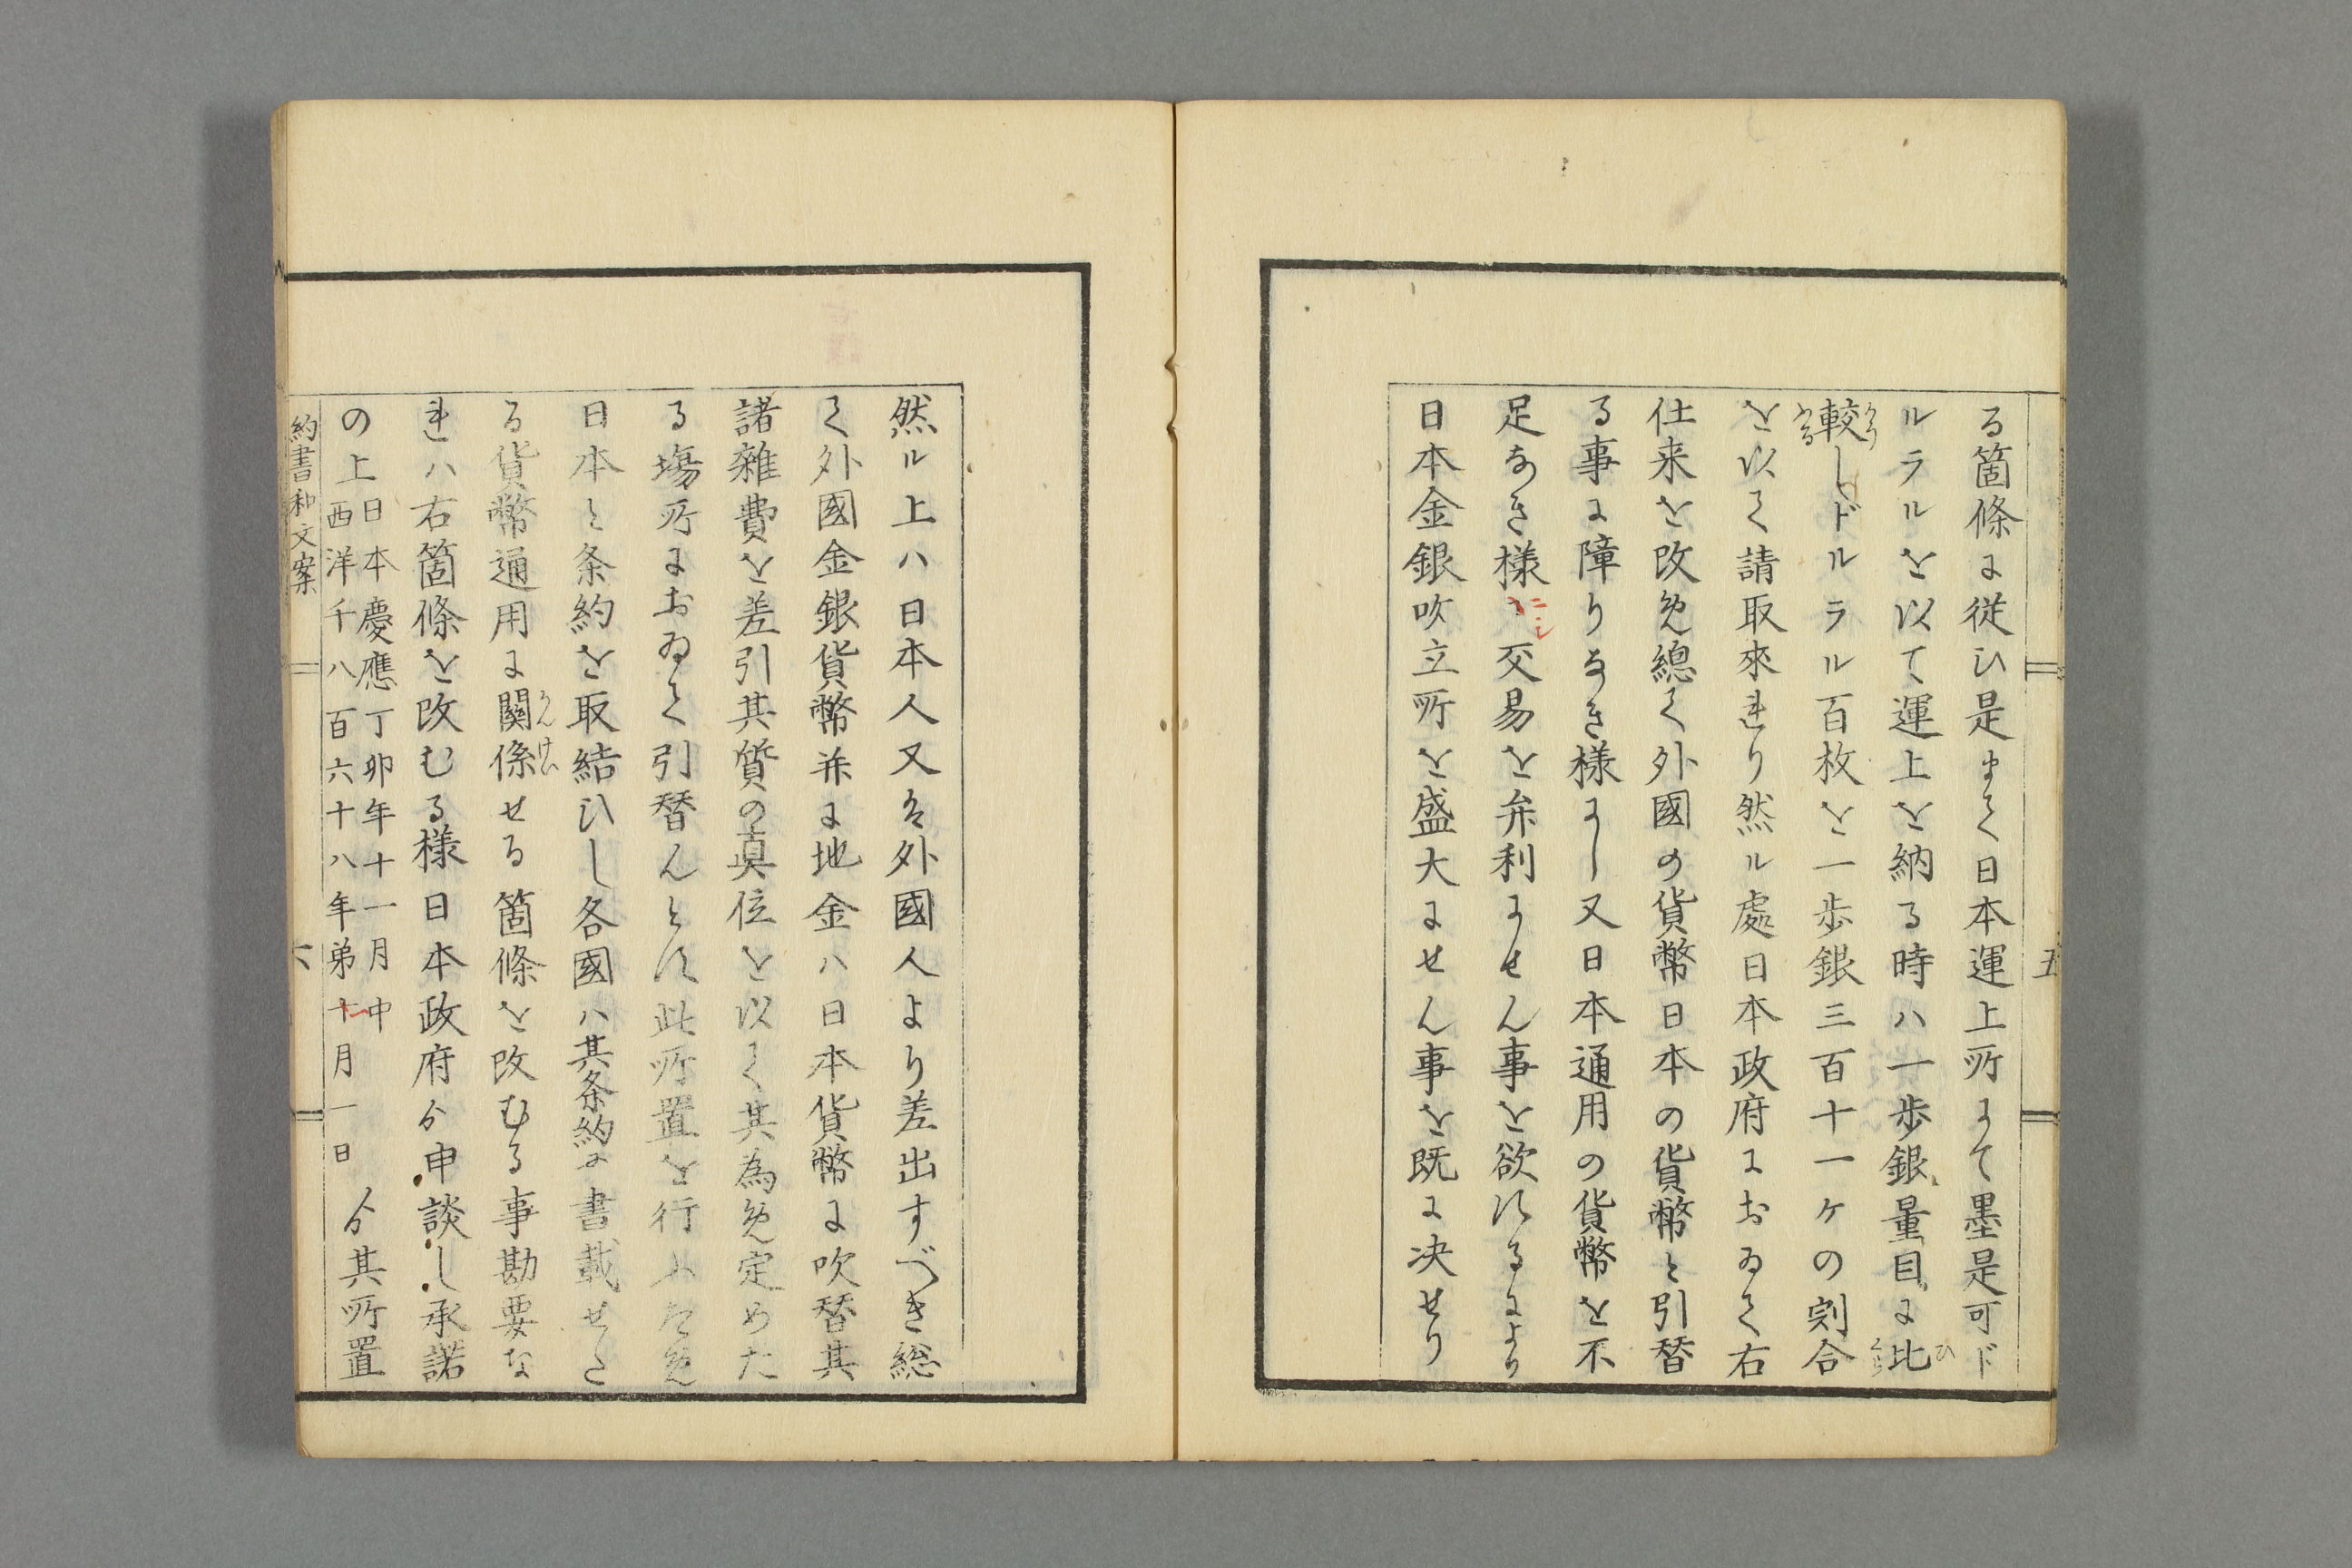 五
る箇條に従ひ是まて日本運上所にて墨是可ド
ルラルを以て運上を納る時ハ一歩銀量目に比
較しドルラル百枚を一歩銀三百十一ケの割合
を以て請取來れり然ル處日本政府におゐて右
仕来を改め總て外國の貨幣日本の貨幣と引替
る事に障りなき様にし又日本通用の貨幣を不
足なき様交易を弁利にせん事を欲するより
日本金銀吹立所を盛大にせん事を既に决せり
然ル上ハ日本人又は外國人より差出すべき総
て外國金銀貨幣并に地金ハ日本貨幣に吹替其
諸雑費を差引其質の真位を以て其為め定めた
る塲所におゐて引替んとす此所置を行ふため
日本と条約を取結ひし各國ハ其条約に書載せた
る貨幣通用に關係せる箇條を改むる事勘要な
れハ右箇條を改むる様日本政府ゟ申談し承諾
の上
日本慶應丁卯年十一月中
西洋千八百六十八年苐十月一日
ゟ其所置
約書和文案
六